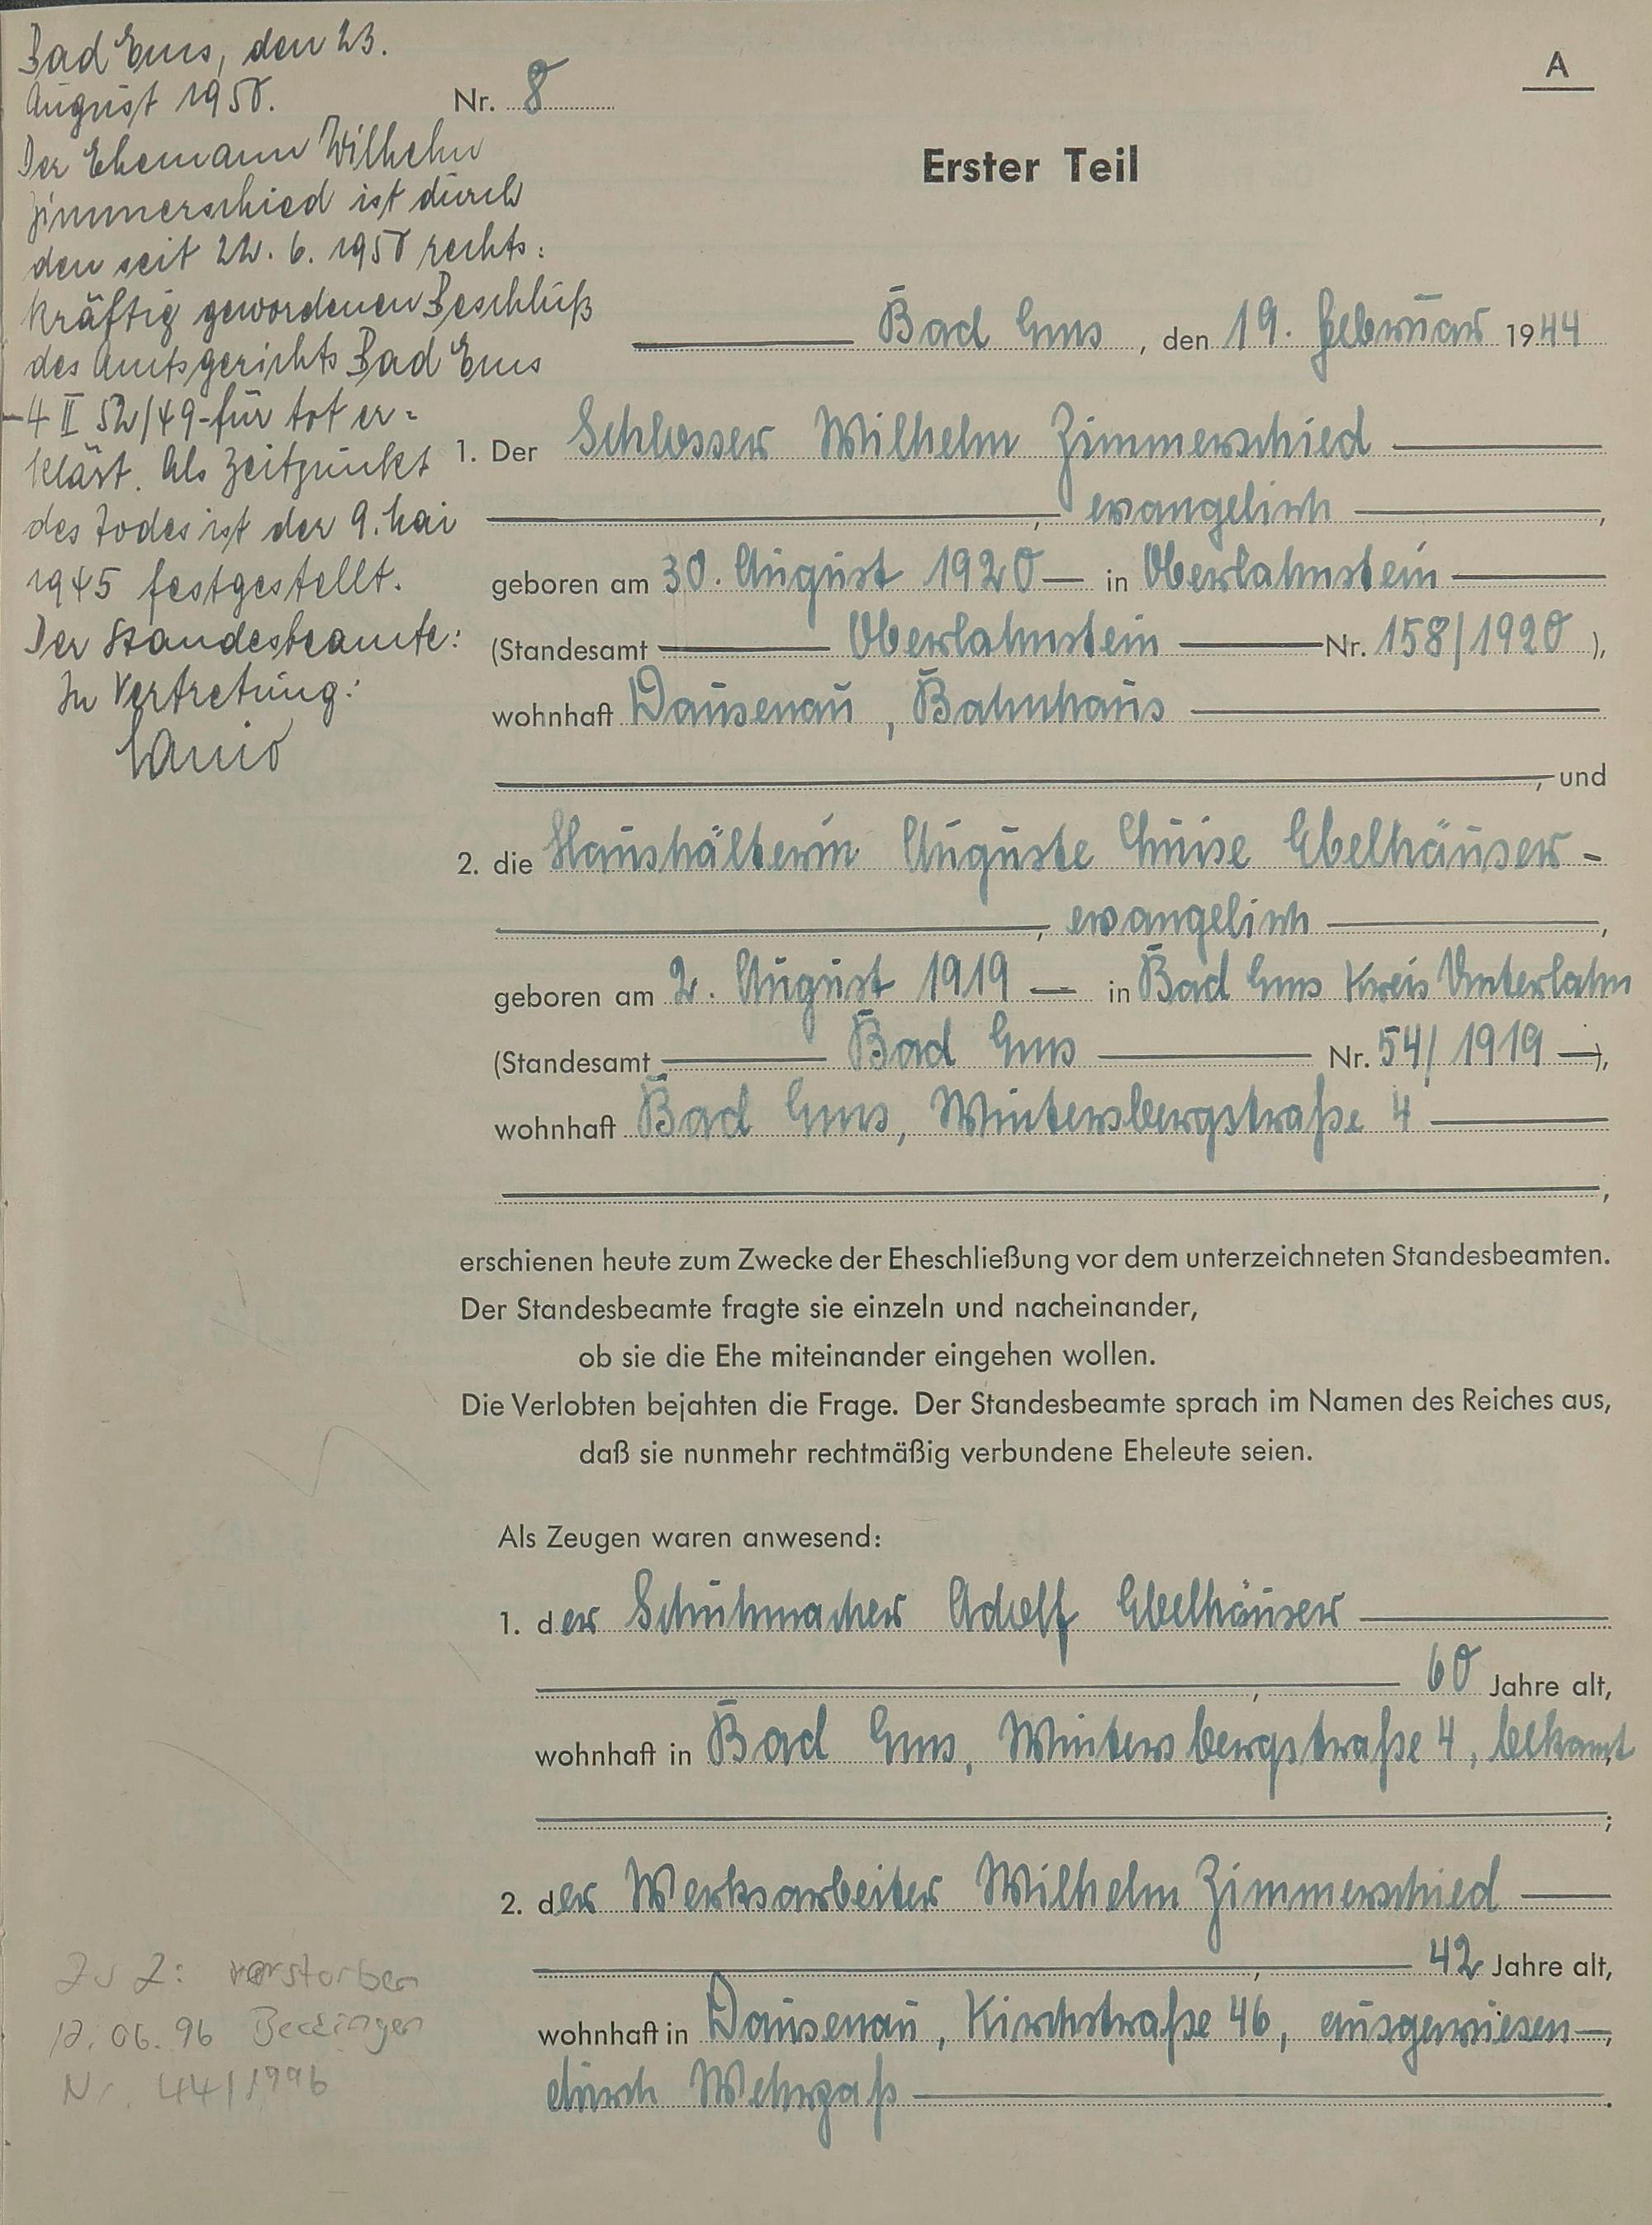 Bad Ems, den 23.
August 1950.
Der Ehemann Wilhelm
Zimmerschied ist durch
den seit 22. 6. 1950 rechts:
kräftig gewordenen Beschluß
des Amtsgerichts Bad Ems
-4 II 52/49- für tot er=
klärt. Als Zeitpunkt
des Todes ist der 9. Mai
1945 festgestellt.
Der Standesbeamte:
In Vertretung:
A
Nr. 8
Erster Teil
Bad Ems, den 19. Februar 1944
1. Der Schlosser Wilhelm Zimmerschied
, evangelisch,
geboren am 30. August 1920 in Oberlahnstein
(Standesamt Oberlahnstein Nr. 158/1920),
wohnhaft Dausenau, Bahnhaus
, und
2. die Haushälterin Auguste Luise Ebelhäuser -
, evangelisch,
geboren am 2. August 1919 in Bad Ems Kreis Unterlahn
(Standesamt Bad Ems Nr. 54/1919),
wohnhaft Bad Ems, Wintersbergstraße 4
,
erschienen heute zum Zwecke der Eheschließung vor dem unterzeichneten Standesbeamten.
Der Standesbeamte fragte sie einzeln und nacheinander,
ob sie die Ehe miteinander eingehen wollen.
Die Verlobten bejahten die Frage. Der Standesbeamte sprach im Namen des Reiches aus,
daß sie nunmehr rechtmäßig verbundene Eheleute seien.
Als Zeugen waren anwesend:
1. der Schuhmacher Adolf Ebelhäuser
, 60 Jahre alt,
wohnhaft in Bad Ems, Wintersbergstraße 4, bekannt
;
2. der Werksarbeiter Wilhelm Zimmerschied
, 42 Jahre alt,
wohnhaft in Dausenau, Kirchstraße 46, ausgewiesen,
durch Wehrpaß.
Zu 2: verstorben
12.06.96 Beckingen
Nr. 44/1996